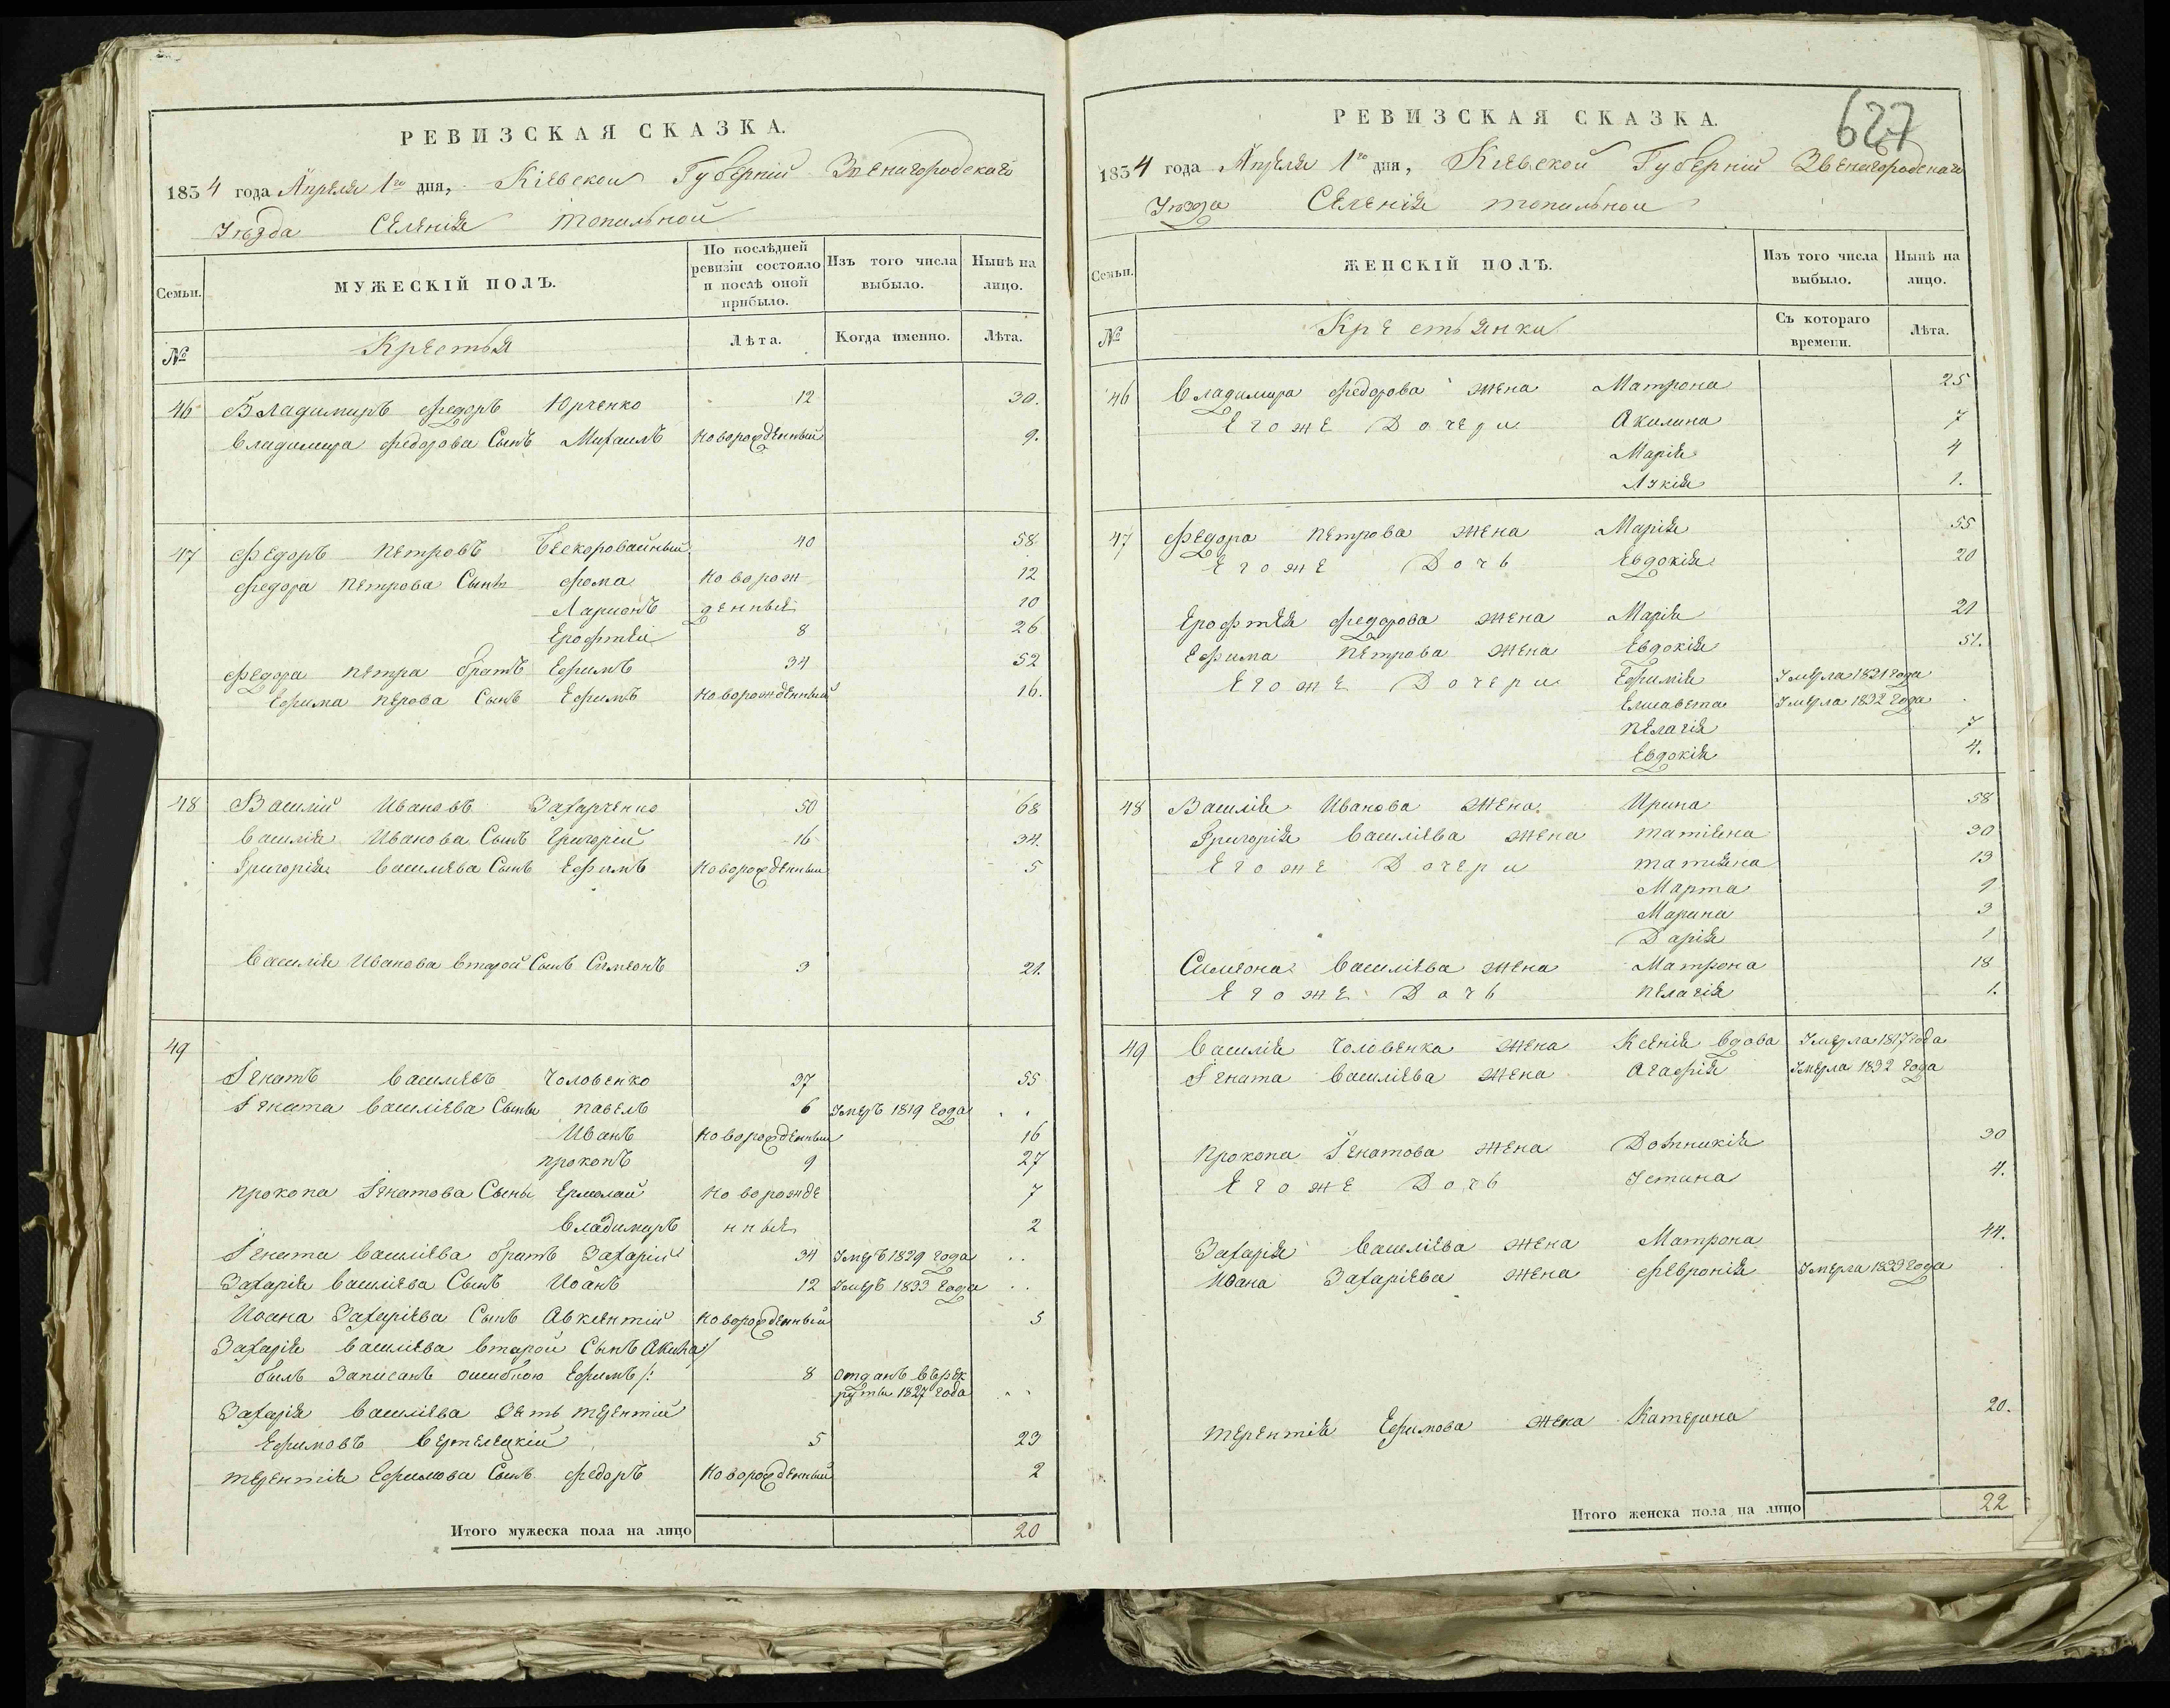 РЕВИЗСКАЯ СКАЗКА.
1834 года Апреля 1го дня, Кіевской Губерніи Звенигородскаго
Уѣзда Селенія Топильной
Семьи.
МУЖЕСКІЙ ПОЛЪ.
По послѣдней ревизіи состояло и послѣ оной прибыло.
Изъ того числа выбыло.
Нынѣ на лицо.
№
Крестья
Лѣта.
Когда именно.
Лѣта.
46 Владимиръ Федоръ Юрченко 12 30.
Владимира Федорова Сынъ Михаилъ новорожденный 9.
47 Федоръ Петровъ Бескоровайный 40 58
Федора Петрова Сынъ Фома новорож 12
Ларионъ денные 10
Ерофтей 8 26
Федора Петра братъ Ефимъ 34 52
Ефима Перова Сынъ Ефимъ новорожденный 16.
48 Василий Ивановъ Захарченко 50 68
Василія Иванова Сынъ Григорій 16 34.
Григорія Василіева Сынъ Ефимъ новорожденный 5
Василія Иванова второй Сынъ Симеонъ 3 21.
49
Ігнатъ Василіевъ Чоловенко 37 55
Ігната Василіева Сыны Павелъ 6 Умеръ 1819 года . .
Иванъ новорожденный 16
Прокопъ 9 27
Прокопа Ігнатова Сыны Ермолай новорожде 7
Владимиръ нные 2
Ігната Василіева братъ Захарій 34 Умеръ 1829 года . .
Захарія Василіева Сынъ Иоанъ 12 Умеръ 1833 года . .
Иоана Захаріева Сынъ Авкентій новорожденный 5
Захарія Василіева второй Сынъ
былъ записанъ ошибкою Ефимъ/: 8 отданъ въ рек
руты 1827 года . .
Захарія Василіева зять Терентій
Ефимовъ Верпелецкій 5 23
Терентія Ефимова Сынъ Федоръ новорожденный 2
Итого мужеска пола на лицо 20
627
РЕВИЗСКАЯ СКАЗКА.
1834 года Апреля 1го дня, Кіевской Губерніи Звенигородскаго
Уѣзда Селенія Топильной
Семьи.
ЖЕНСКІЙ ПОЛЪ.
Изъ того числа выбыло.
Нынѣ на лицо.
№
Крестьянки
Съ котораго времени.
Лѣта.
46 Владимира Федорова жена Матрона 25
Егоже Дочери Акилина 7
Марія 4
Лукія 1.
47 Федора Петрова жена Марія 55
Егоже Дочь Евдокія 20
Ерофтея Федорова жена Марія 21
Ефима Петрова жена Евдокія 51.
Егоже Дочери Ефимія Умерла 1821 года
Елисавета Умерла 1832 года .
Пелагія 7
Евдокія 4.
48 Василія Иванова жена Ирина 58
Григорія Василіева жена Татіяна 30
Егоже Дочери Татияна 13
Марта 9
Марина 3
Дарія 1
Симеона Василіева жена Матрона 18
Егоже Дочь Пелагія 1.
49 Василія Чоловенка жена Ксенія вдова Умерла 1817 года
Ігната Василіева жена Агафія Умерла 1832 года
Прокопа Ігнатова жена Домникія 30
Егоже Дочь Устина 4.
Захарія Василіева жена Матрона 44.
Иоана Захаріева жена Февронія Умерла 1833 года .
Терентія Ефимова жена Катерина 20.
Итого женска пола на лицо 22